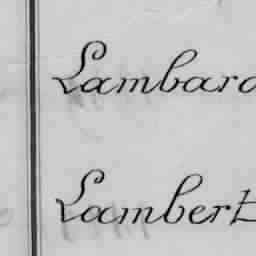 Lambard
Lambert